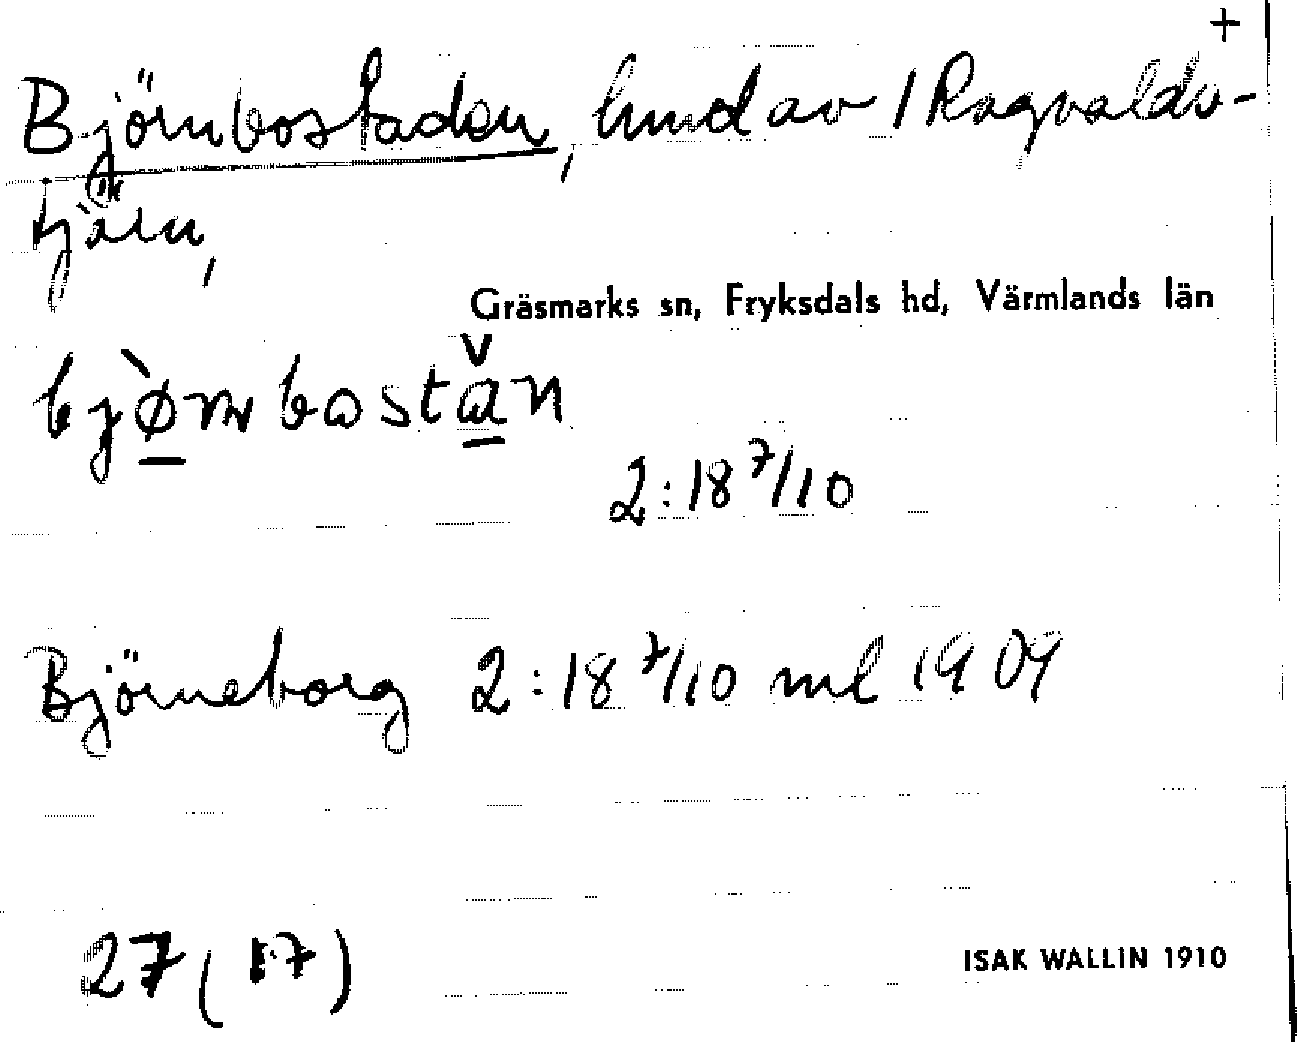 +
Björnbostaden, hmd av 1 Ragvalds-
tjärn,
Gräsmarks sn, Fryksdals hd, Värmlands län
2:18 7/10
Björneborg 2:18 7/10 ml 1909
27 (17)
ISAK WALLIN 1910